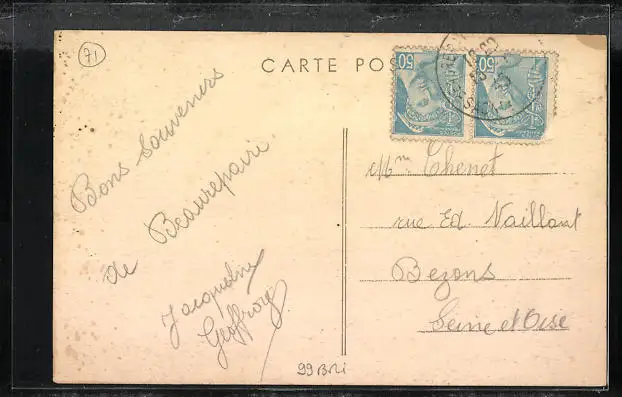 71
CARTE POS
50
50
Bons souvenirs
de Beaurepaire
Jacqueline
Geoffroy
Mme Thenet
rue Ed. Vaillant
Bezons
Seine et Oise
99 BRi